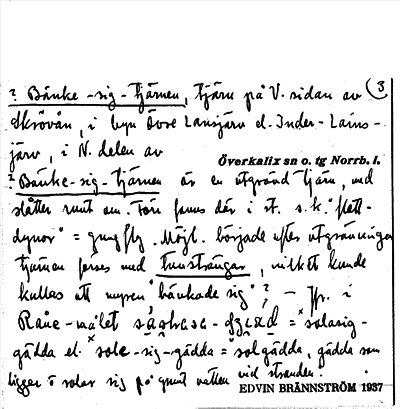 ? Bänke-sig-tjärnen, tjärn på V. sidan av (3
Skrövån, i byn Övre Lansjärv el. Inder-Lains-
järv, i N. delen av
Överkalix sn o. tg Norrb. l.
? Bänke-sig-tjärnen är en utgrävd tjärn, med
slåtter runt om. Förr fanns där i st. s.k. "flott-
dynor" = gungfly. Möjl. började efter utgrävningen
tjärnen förses med tuvsträngar, vilket kunde
kallas att myren "bänkade sig"? – Jfr. i
Råne-målet = ˣsolarsig-
gädda el. ˣsole-sig-gädda = "solgädda, gädda som
ligger o solar sig på grunt vatten vid stranden.
EDVIN BRÄNNSTRÖM 1937